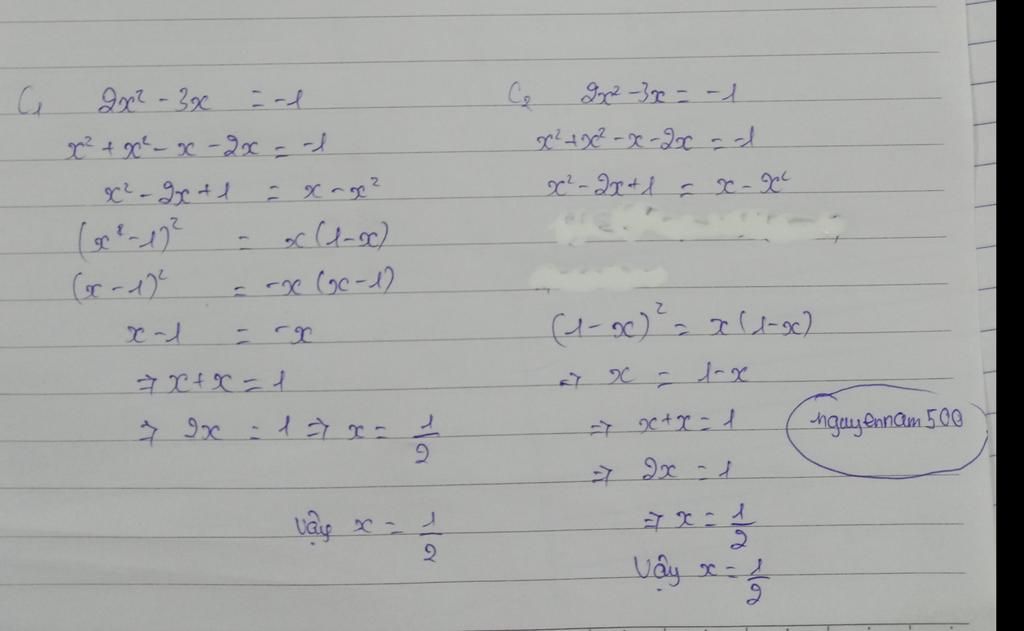 C₁ 2x² - 3x = -1
x² + x² - x - 2x = -1
x² - 2x + 1 = x - x²
(x² - 1)² = x(1-x)
(x - 1)² = -x(x-1)
x - 1 = -x
⇒ x + x = 1
⇒ 2x = 1 ⇒ x = 1/2
Vậy x = 1/2
C₂ 2x² - 3x = -1
x² + x² - x - 2x = -1
x² - 2x + 1 = x - x²
(1 - x)² = x(1-x)
⇒ x = 1-x
⇒ x + x = 1
⇒ 2x = 1
⇒ x = 1/2
Vậy x = 1/2
nguyennam500